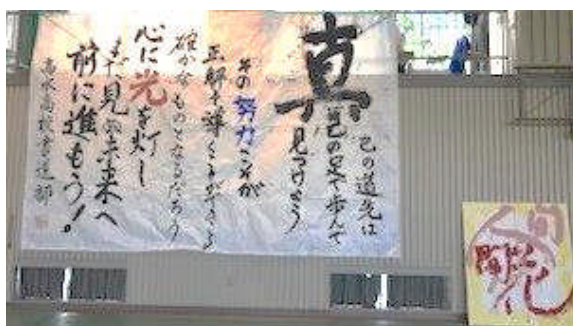 真
己の道先は
自己の足で歩んで
見つけよう
その努力こそが
正解を導くことができる
確かなものとなるだろう
心に光を灯し
まだ見ぬ未来へ
前に進もう!
高水高校書道部